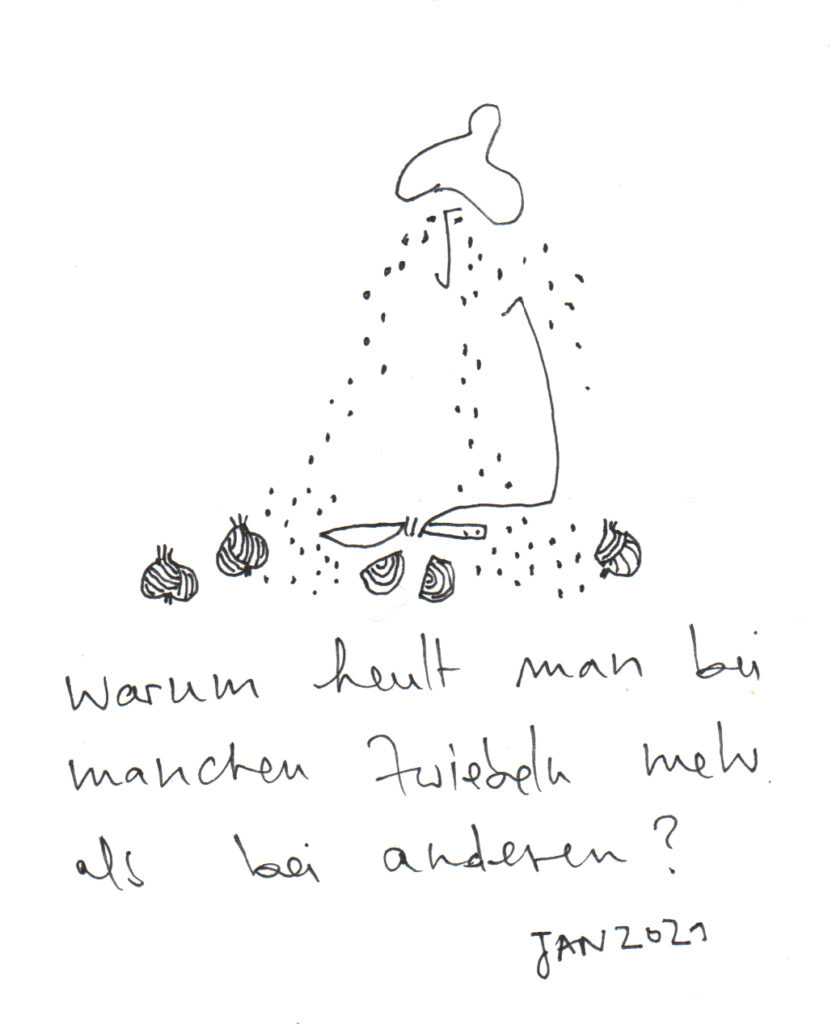 Warum heult man bei
manchen Zwiebeln mehr
als bei anderen?
JAN 2021